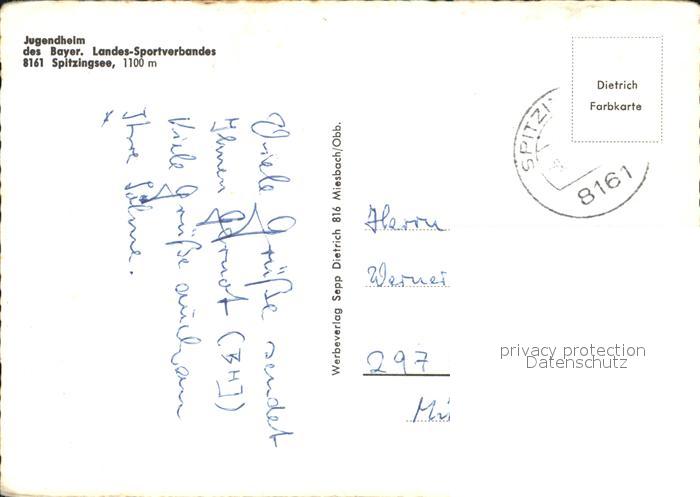 Jugendheim
des Bayer. Landes-Sportverbandes
8161 Spitzingsee, 1100 m
Dietrich
Farbkarte
SPITZI
8161
Werbeverlag Sepp Dietrich 816 Miesbach/Obb.
Viele Grüße sendet
Ihnen Gernot (BHJ)
Viele Grüße auch an
Ihre Söhne.
Herrn
Werner
297
privacy protection
Datenschutz